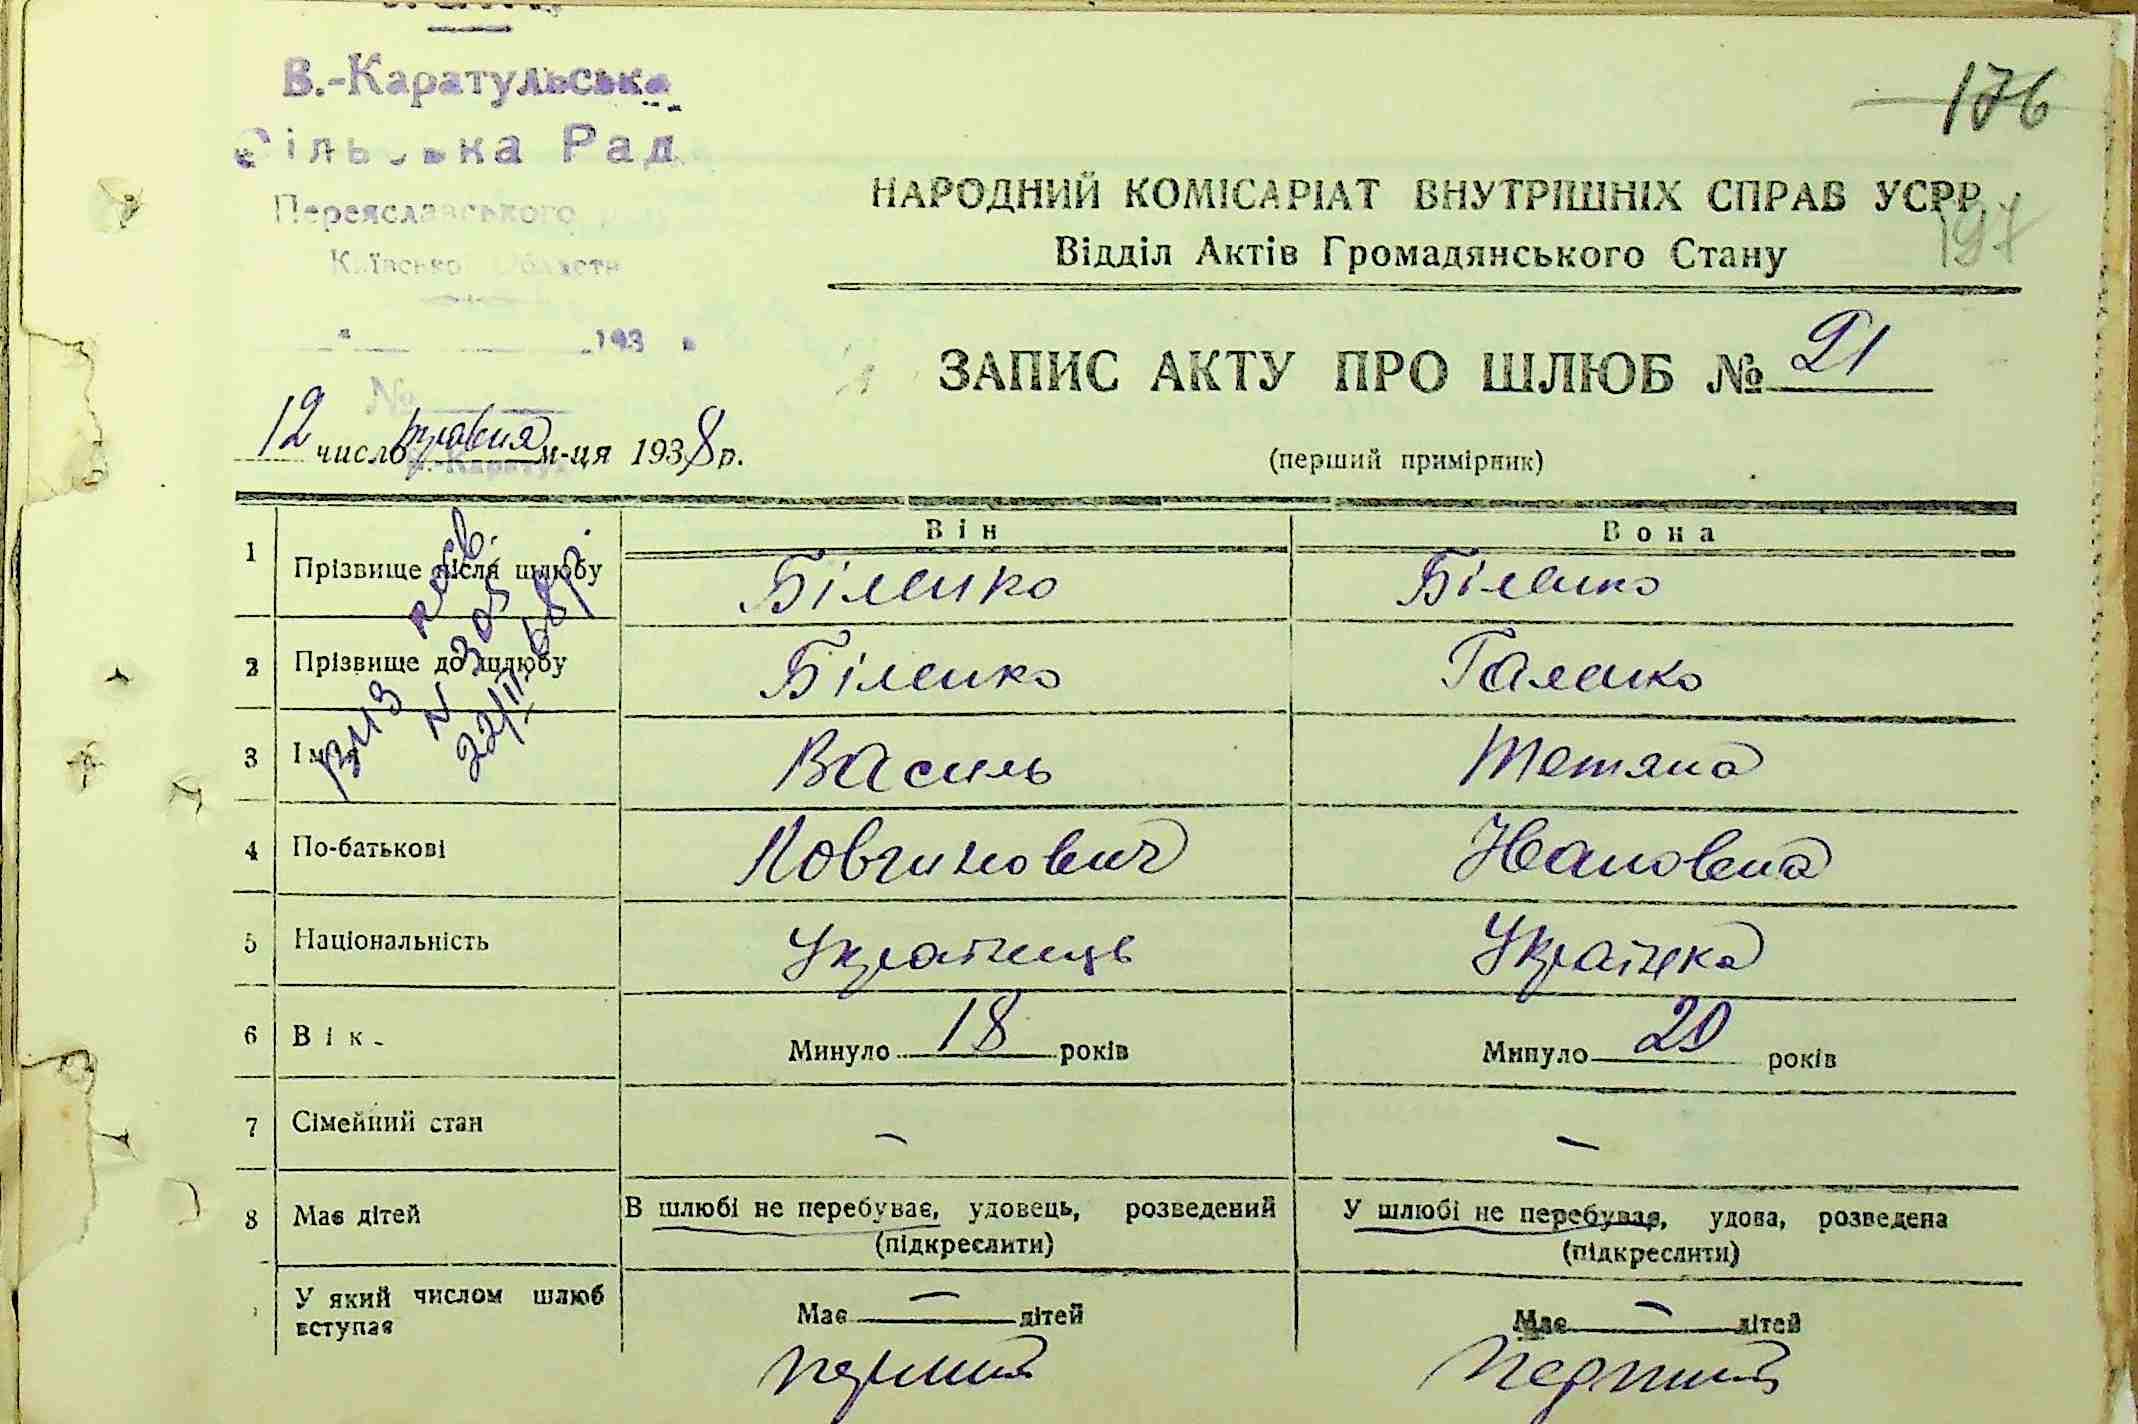 В.-Каратульська
Сільська Рад
Переяславського
Київсько Області
176
197
НАРОДНИЙ КОМІСАРІАТ ВНУТРІШНІХ СПРАВ УСРР
Відділ Актів Громадянського Стану
193
№
ЗАПИС АКТУ ПРО ШЛЮБ № 21
12 число травня м-ця 1938 р.
(перший примірник)
Він Вона
1 Прізвище після шлюбу Біленко Біленко
2 Прізвище до шлюбу Біленко Галенко
3 Ім'я Василь Тетяна
4 По-батькові Ловгинович Івановна
5 Національність Українець Українка
6 Вік. Минуло 18 років Минуло 20 років
7 Сімейний стан – –
8 Має дітей В шлюбі не перебуває, удовець, розведений У шлюбі не перебуває, удова, розведена
(підкреслити) (підкреслити)
У який числом шлюб вступає Має – дітей Має – дітей
перший перший
N 305
22/II 68 р.